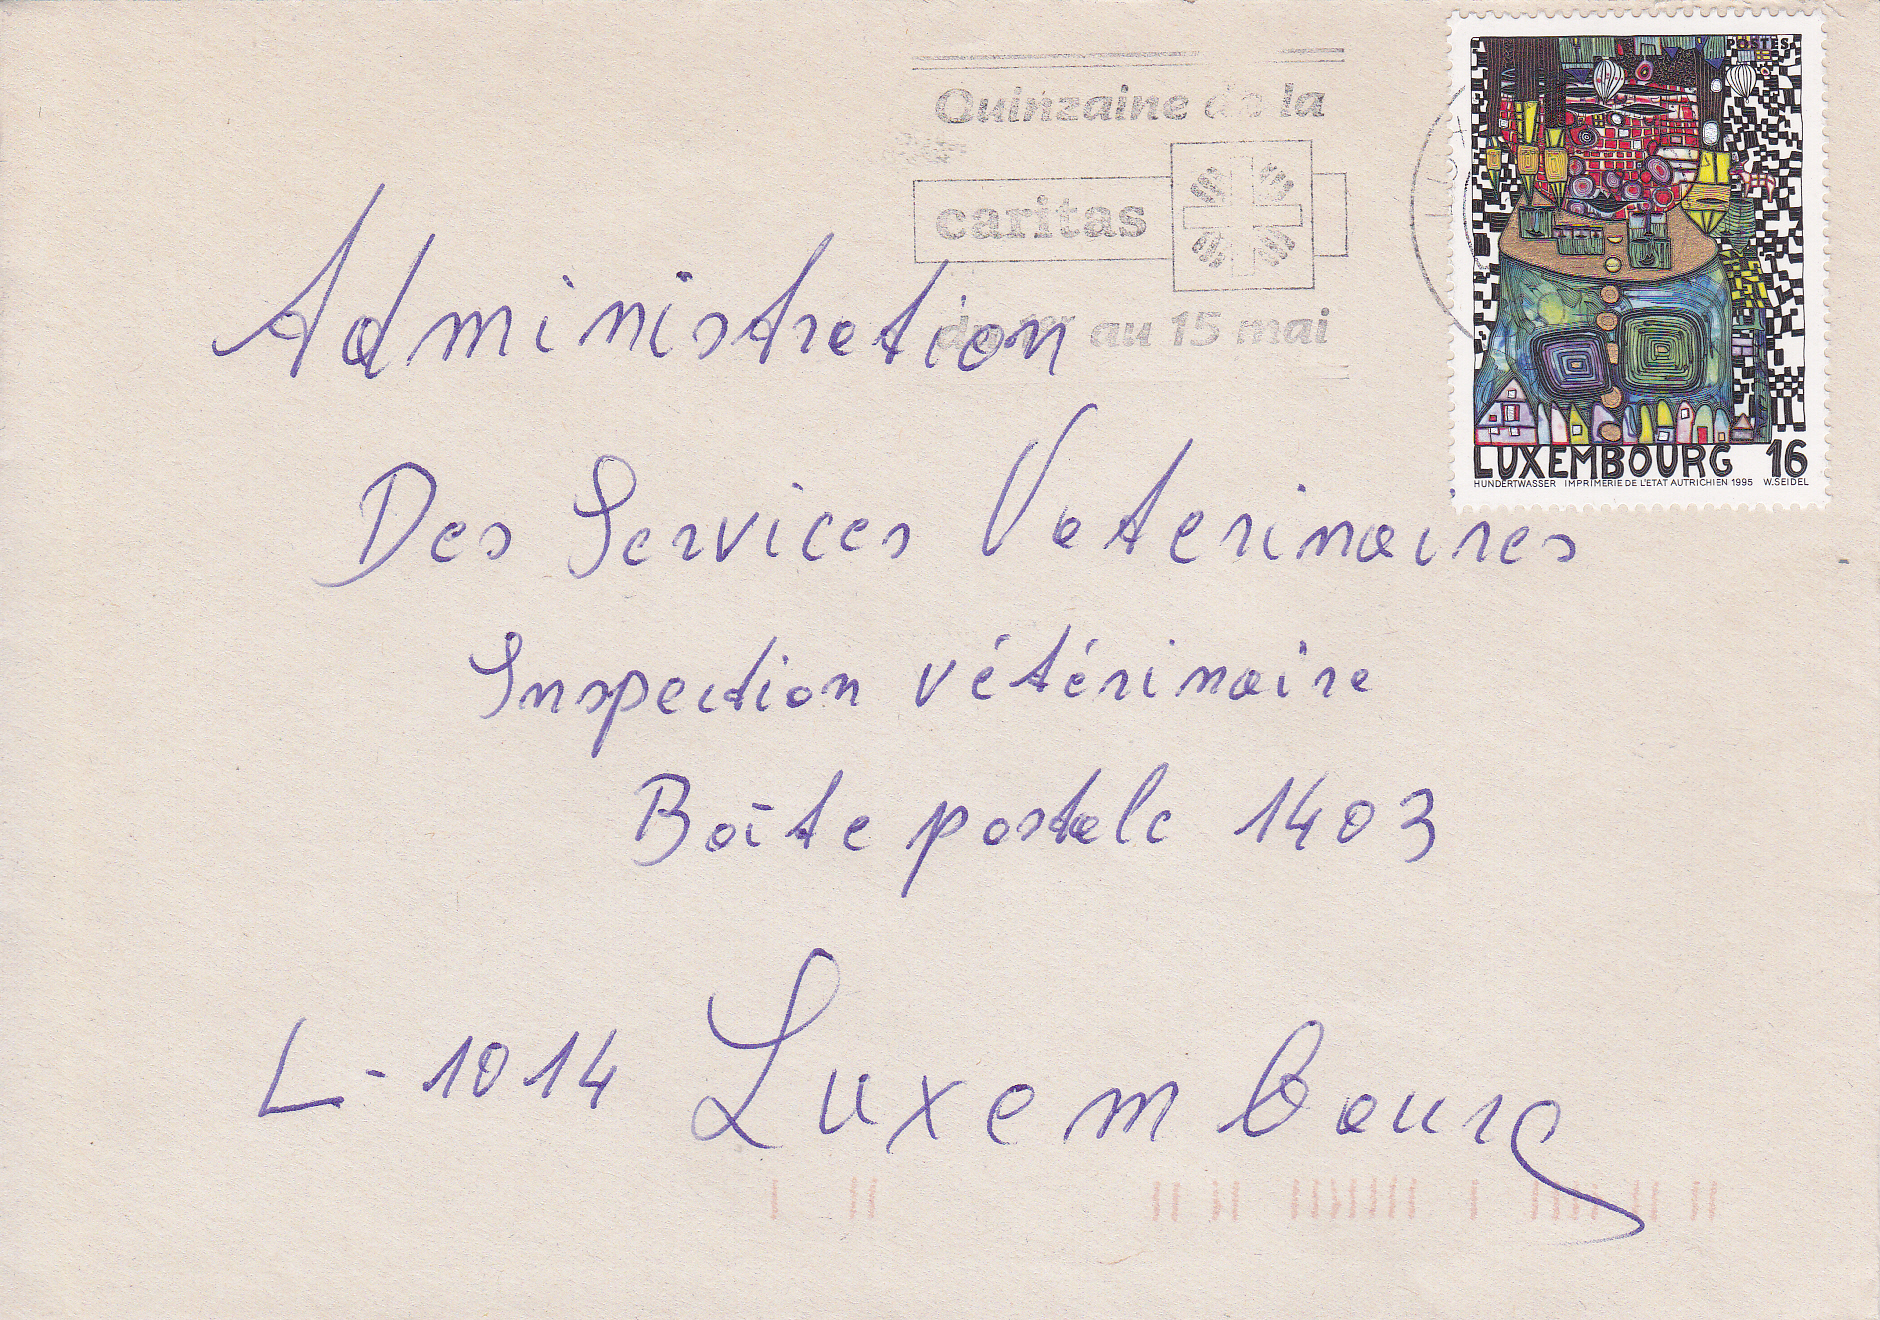 Quinzaine de la
caritas
du 1er au 15 mai
POSTES
LUXEMBOURG 16
HUNDERTWASSER IMPRIMERIE DE L'ETAT AUTRICHIEN 1995 W.SEIDEL
Administration
Des Services Veterinaires
Inspection vétérinaire
Boîte postale 1403
L-1014 Luxembourg